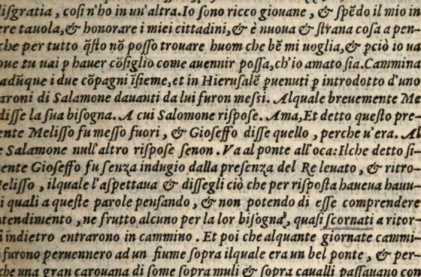 disgratia, cosi n'ho in un'altra. Io sono ricco giouane, & spẽdo il mio in
re tauola, & honorare i miei cittadini, & è nuoua & strana cosa a pen-
che per tutto q̃sto nõ posso trouare huom che bẽ mi uoglia, & pciò io ua
oue tu uai p hauer cõsiglio come auenir possa, ch'io amato sia. Cammina
adũque i due cõpagni ĩsieme, et in Hierusalẽ puenuti p introdotto d'uno
aroni di Salamone dauanti da lui furon messi. Alquale breuemente Me
disse la sua bisogna. A cui Salomone rispose. Ama, Et detto questo pre-
nte Melisso fu messo fuori, & Gioseffo disse quello, perche u'era. Al
e Salamone null'altro rispose senon. Va al ponte all'oca: Ilche detto si-
ente Gioseffo fu senza indugio dalla presenza del Re leuato, & ritro-
elisso, ilquale l'aspettaua & dissegli ciò che per risposta haueua hauu-
i quali a queste parole pensando, & non potendo di esse comprendere
ntendimento, ne frutto alcuno per la lor bisogna, quasi scornati a ritor-
i indietro entrarono in cammino. Et poi che alquante giornate cammi-
furono peruennero ad un fiume sopra ilquale era un bel ponte, & per-
he una gran carouana di some sopra muli & sopra caualli passauano con